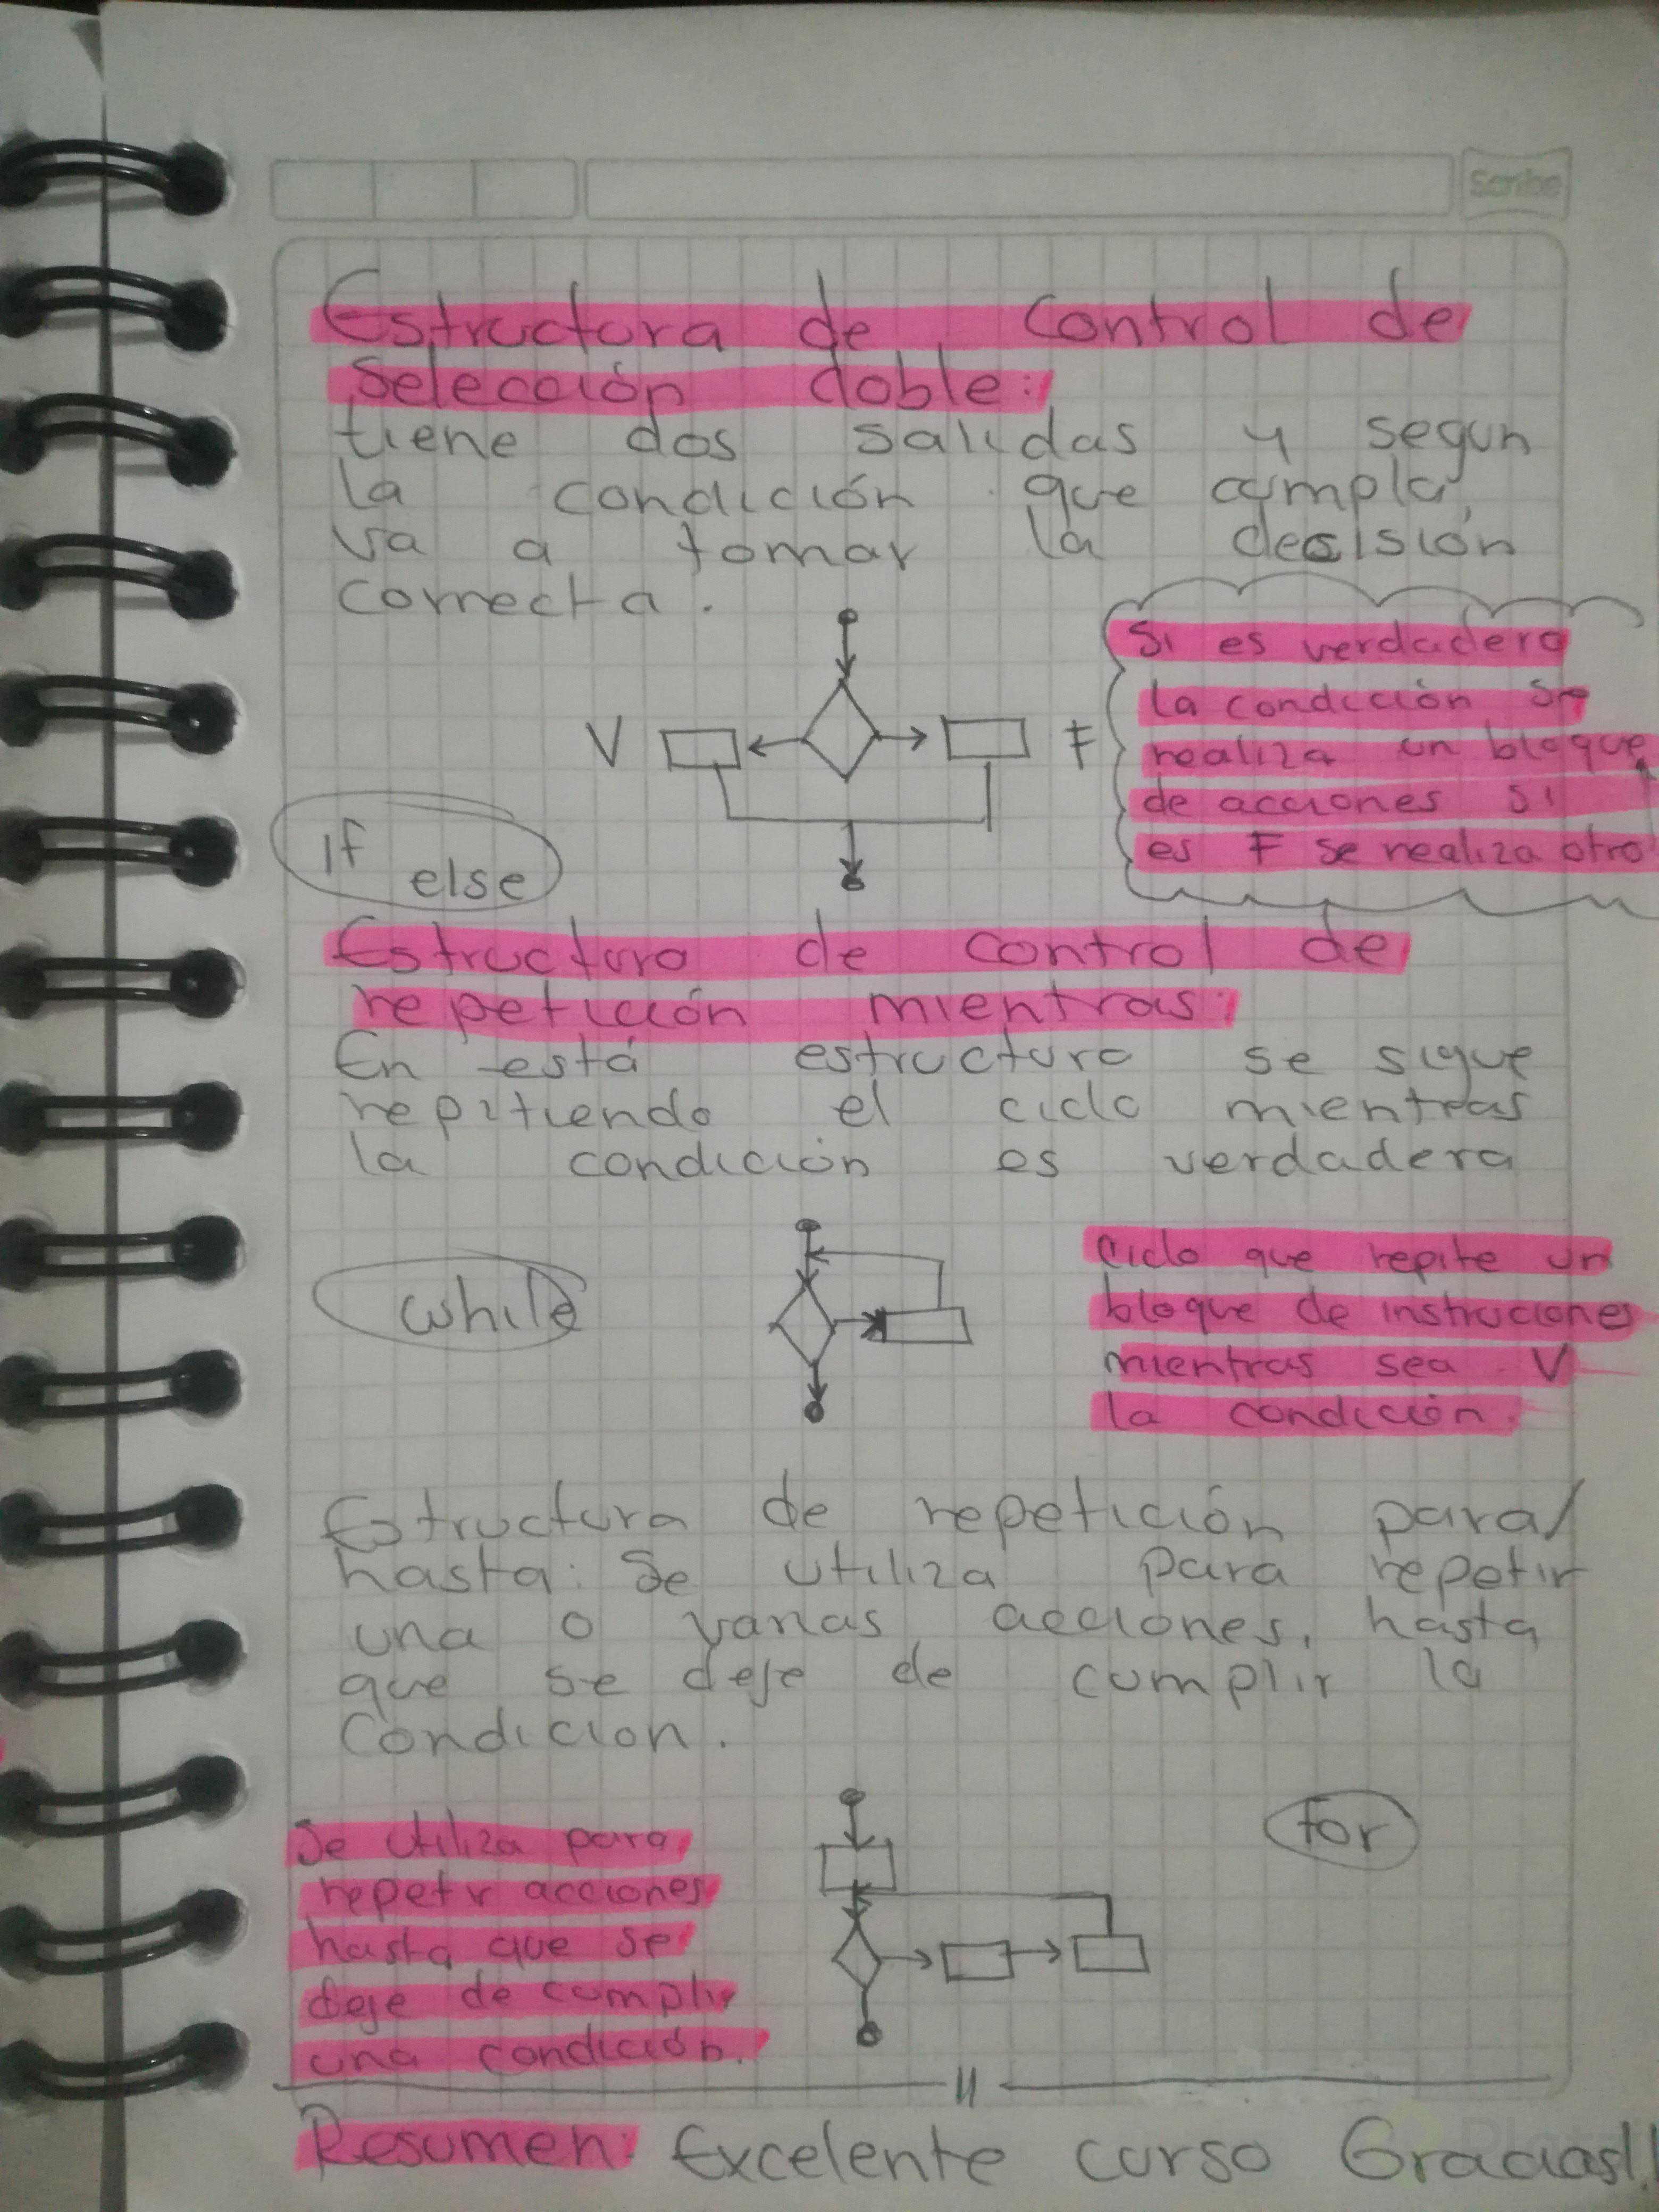 Scribe
Estructura de control de
Selección doble:
tiene dos salidas y segun
la condición que cumpla,
va a tomar la decisión
correcta.
Si es verdadero
la condición se
realiza un bloque
de acciones si
es F se realiza otro
V
F
if
else
Estructura de control de
repetición mientras:
En está estructura se sigue
repitiendo el ciclo mientras
la condición es verdadera
while
Ciclo que repite un
bloque de instruciones
mientras sea V
la condición.
Estructura de repetición para/
hasta: Se utiliza para repetir
una o varias acciones, hasta
que se deje de cumplir la
Condicion.
For
Se utiliza para
repetir acciones
hasta que se
deje de cumplir
una condición.
Resumen: Excelente curso Gracias!!